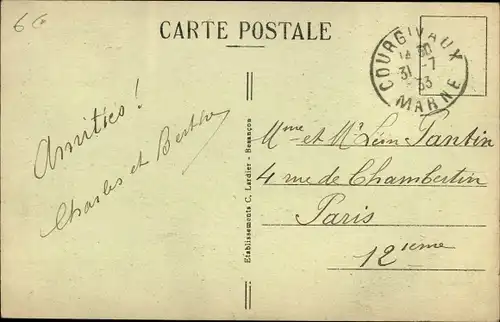 6€
CARTE POSTALE
COURGIVAUX
14 30
31 -7
33
MARNE
Amitiés !
Charles et Berthe
Etablissements C. Lardier - Besançon
Mme et Mr Léon Pantin
4 rue de Chambertin
Paris
12ième